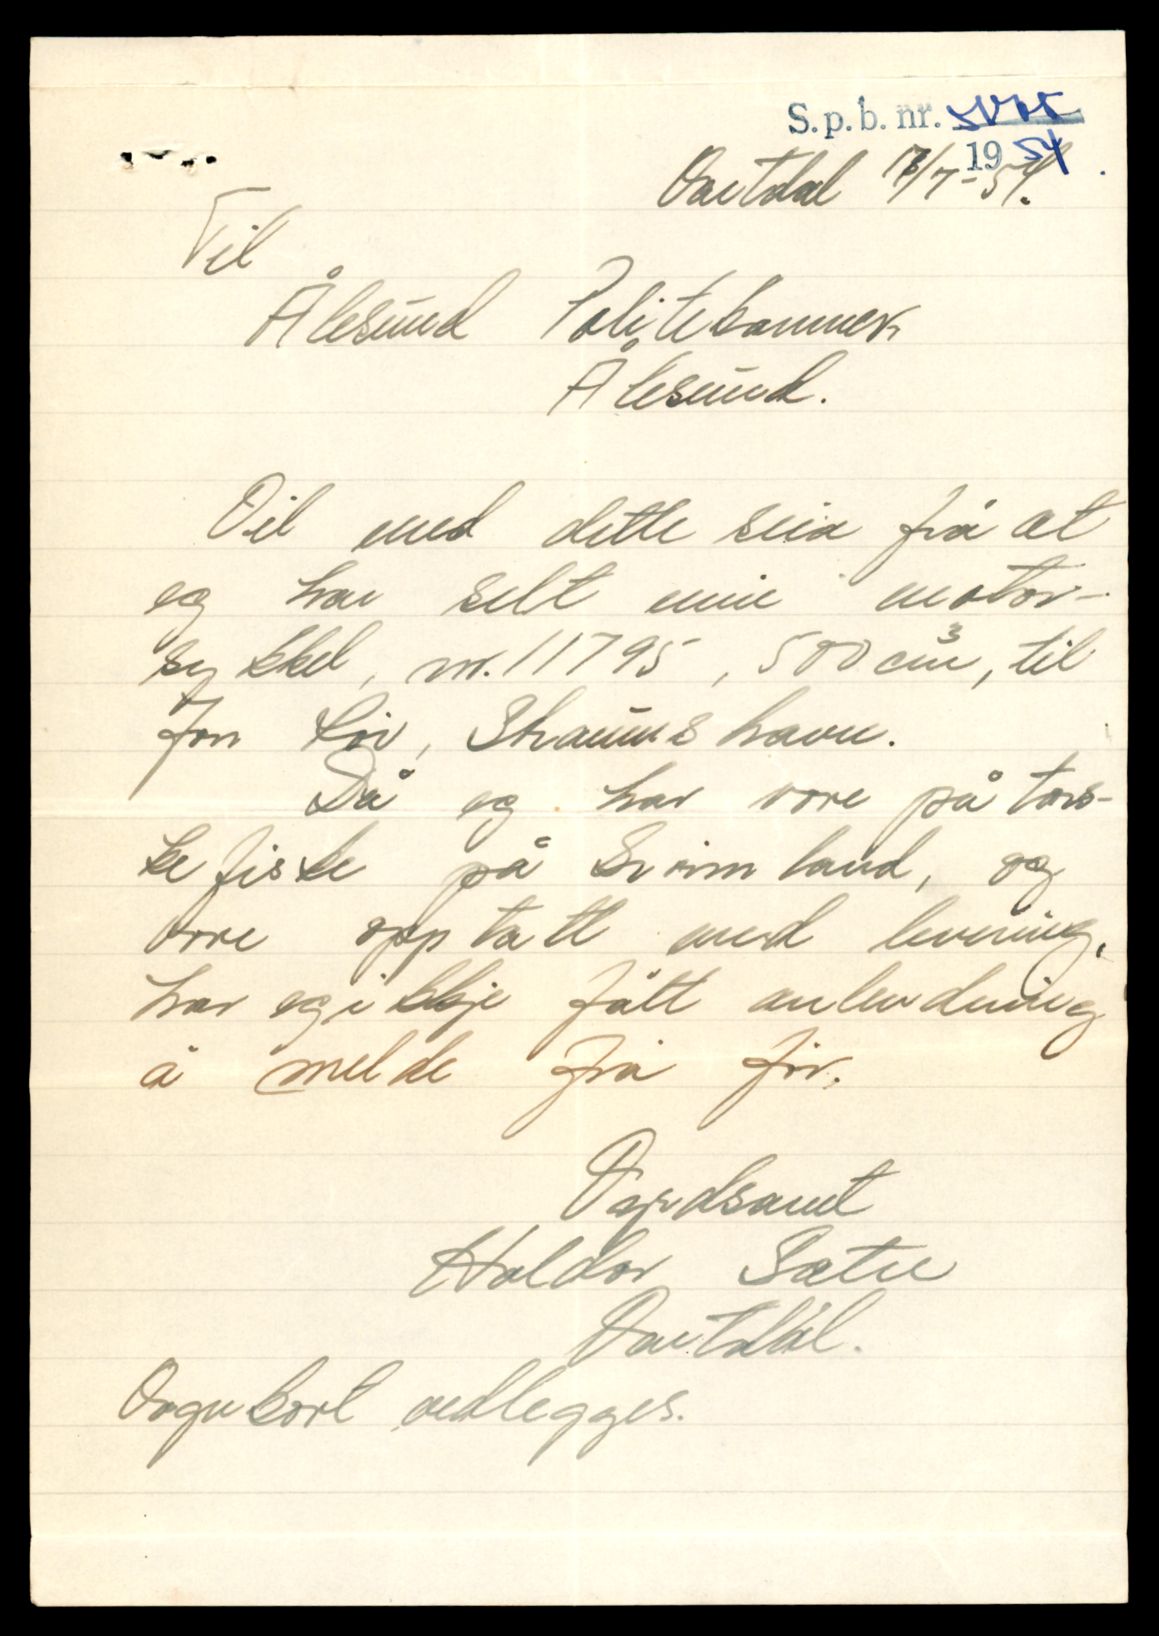 S.p.b. nr.
1954.
Vartdal 17/7-54.
Til
Ålesund Politikammer,
Ålesund.
Vil med dette seia frå at
eg har selt min motor-
sykkel, nr. 11795, 500 cm³, til
Jon Liv, Shamshavn.
Då eg har vore på tors-
kefiske på Grønnland, og
vore opptatt med levering,
har eg ikkje fått anlendning
å melde frå før.
Vyrdsamt
Haldor Sætre
Vartdal.
Vognkort vedlegges.